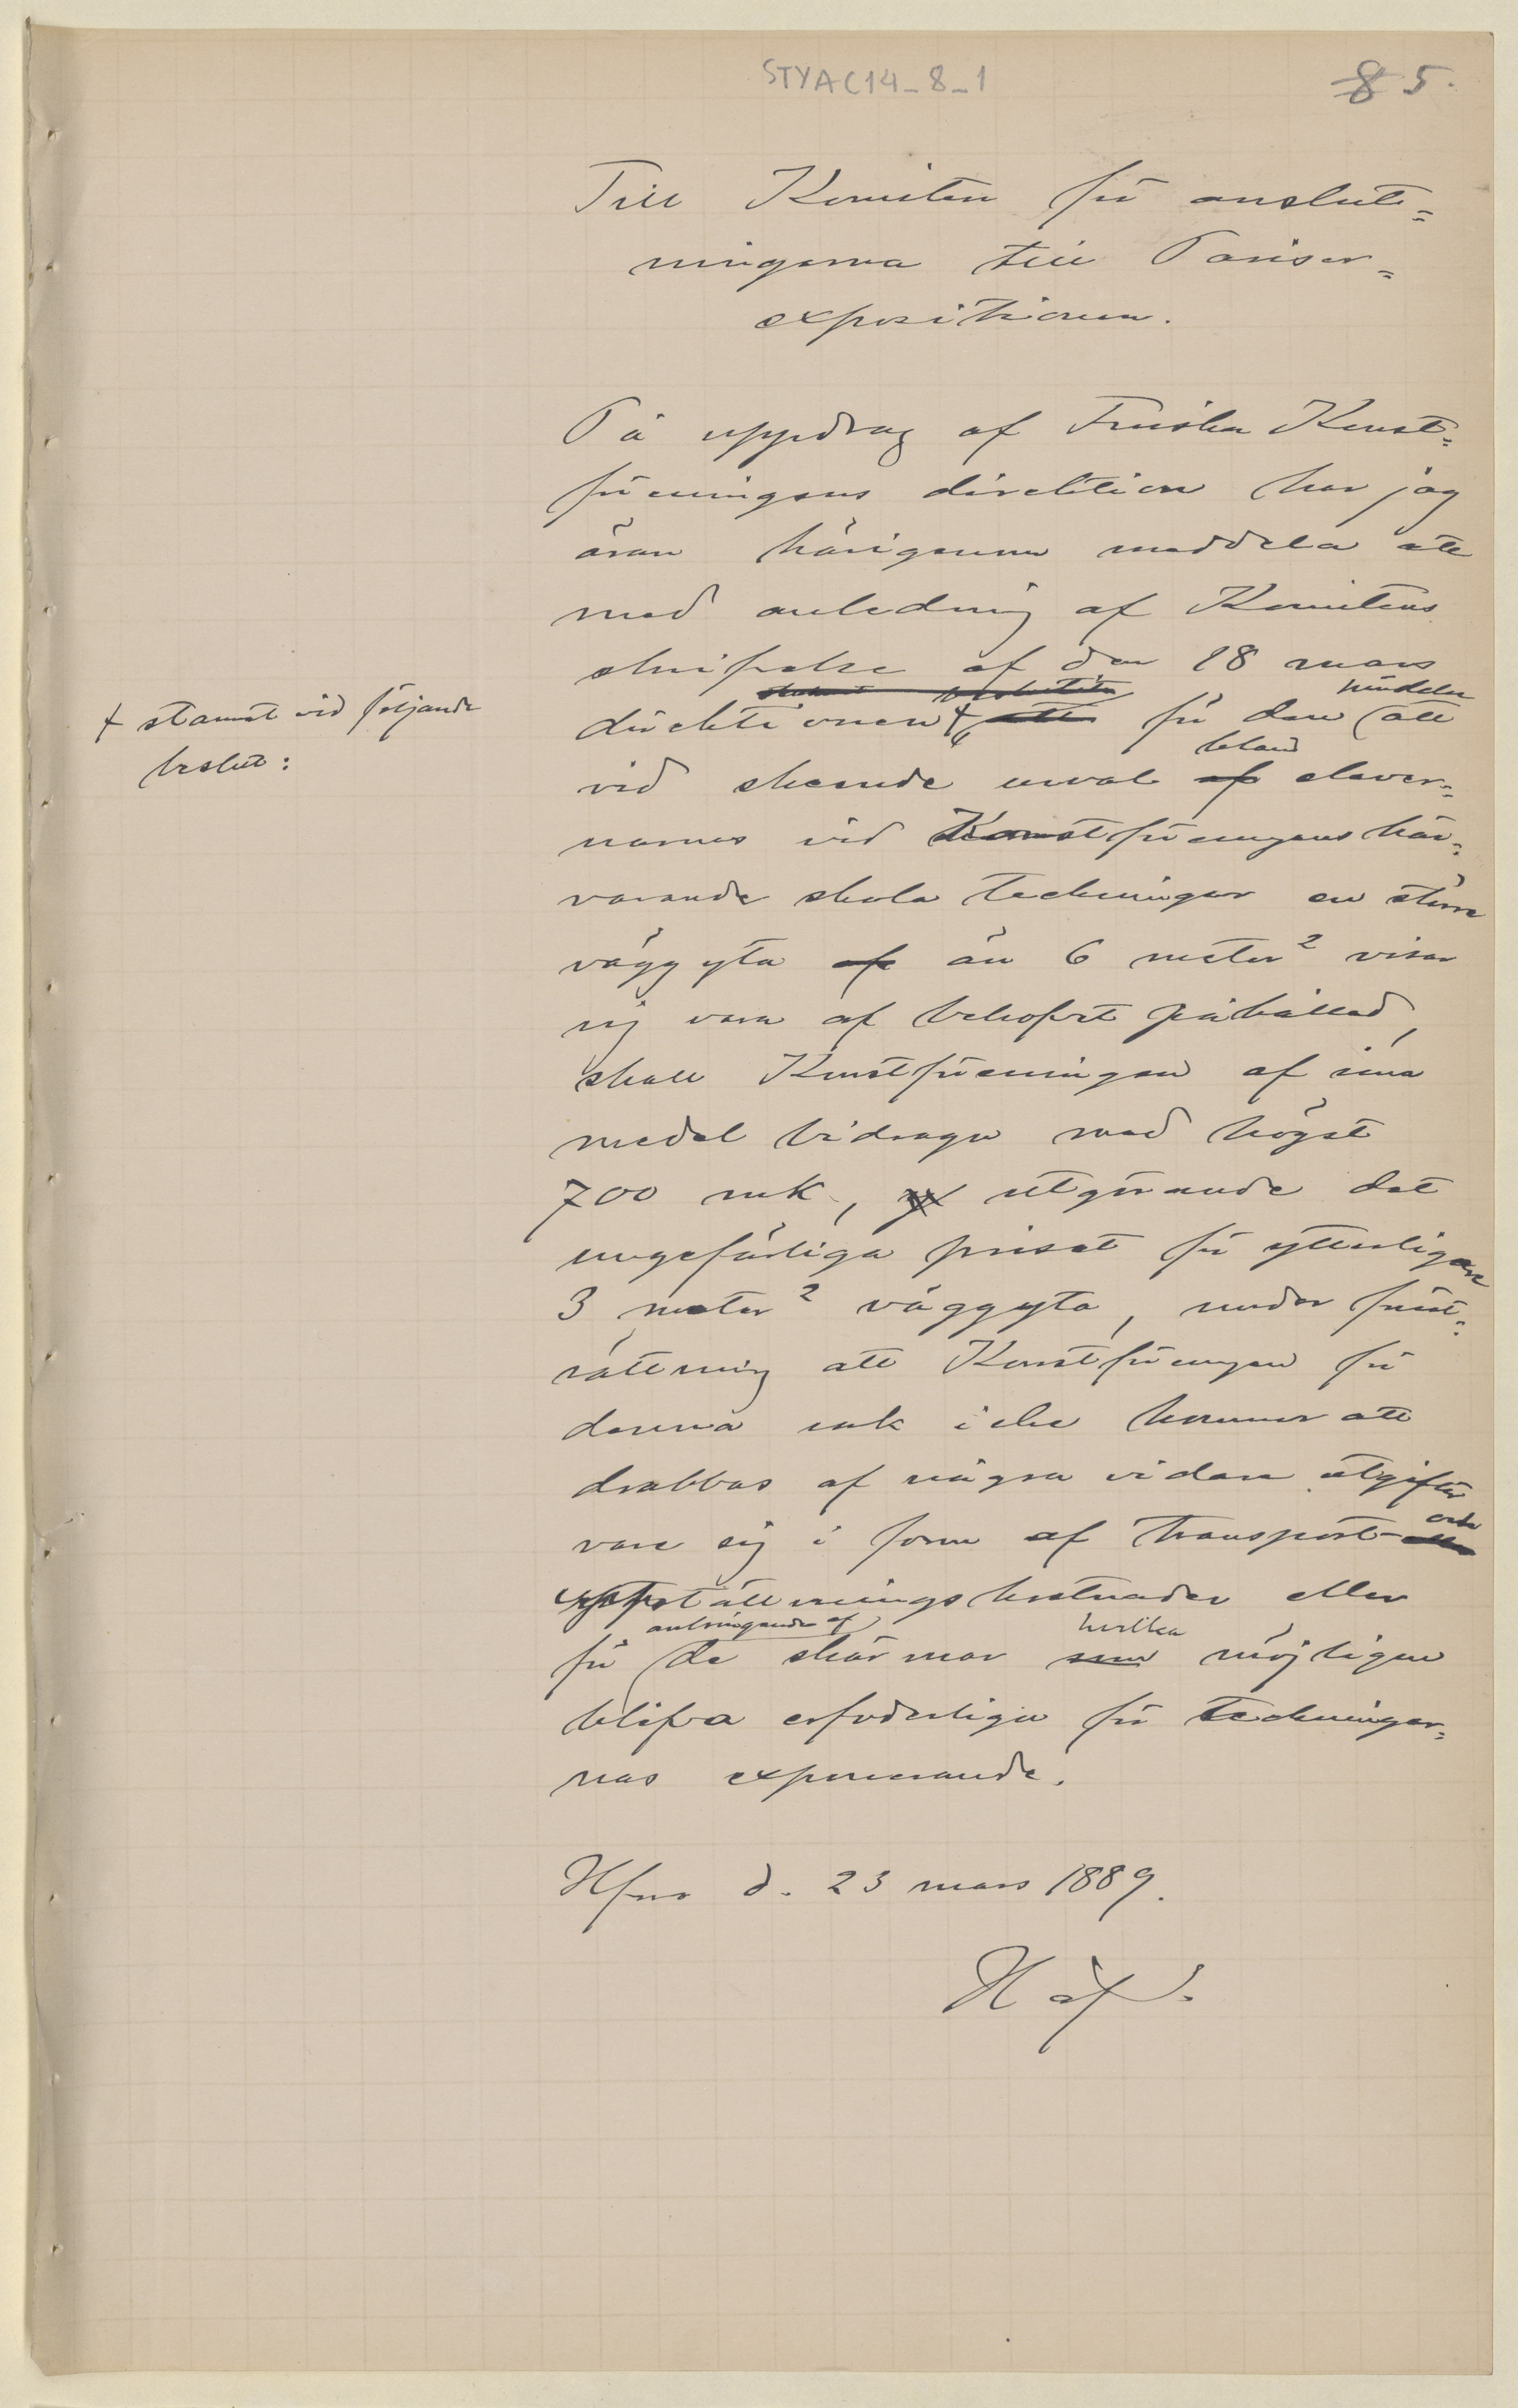 STYA C14_8_1
8 5.
Till Komitén för anslut=
ningarna till Pariser=
expositionen.
På uppdrag af Finska Konst=
föreningens direktion har jag
äran härigenom meddela att
med anledning af Komiténs
skrifvelse af den 18 mars
beslutit
händelse
direktionen + att för den att
+ stannat vid följande
beslut:
bland
vid skeende urval af elever=
narnes vid Konstföreningens här=
varande skola teckningar en större
väggyta af än 6 meter² visar
sig vara af behofvet påkallad,
skall Konstföreningen af sina
medel bidraga med högst
700 mk, utgörande det
ungefärliga priset för ytterligare
3 meter² väggyta, under förut=
sättning att Konstföreningen för
denna sak icke kommer att
drabbas af några vidare utgifter
och
vare sig i form af transport- eller
uppställningskostnader eller
anbringande af
hvilka
för de skärmar som möjligen
blifva erforderliga för teckningar=
nas exponerande.
Hfors d. 23 mars 1889.